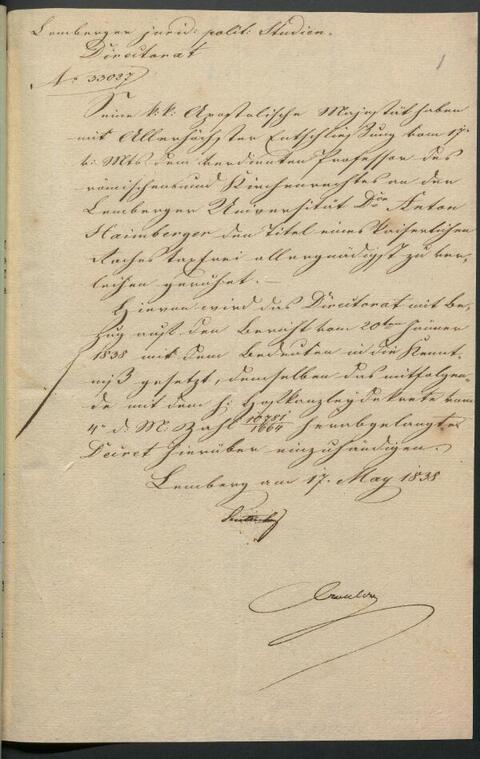 Lemberger jurid: polit: Studien.
Directorat
No 33027
1
Seine k: k: Apostolische Majestät haben
mit Allerhöchster Entschließung vom
v: Mts dem verdienten Professor des
römischen und Kirchenrechtes an der
Lemberger Universität Dor Anton
Haimberger den Titel eines Kaiserlichen
Rathes taxfrei allergnädigst zu ver-
leihen geruhet. —
Hievon wird das Directorat mit Be-
zug auf den Bericht vom 20ten Jänner
1838 mit dem Bedeuten in die Kennt-
niß gesetzt, demselben das mitfolgen-
de mit dem h: Hofkanzleydekrete vom
4n d. M. Zahl 10781/1664 herabgelangte
Decret hierüber einzuhändigen.
Lemberg am 17. May 1838